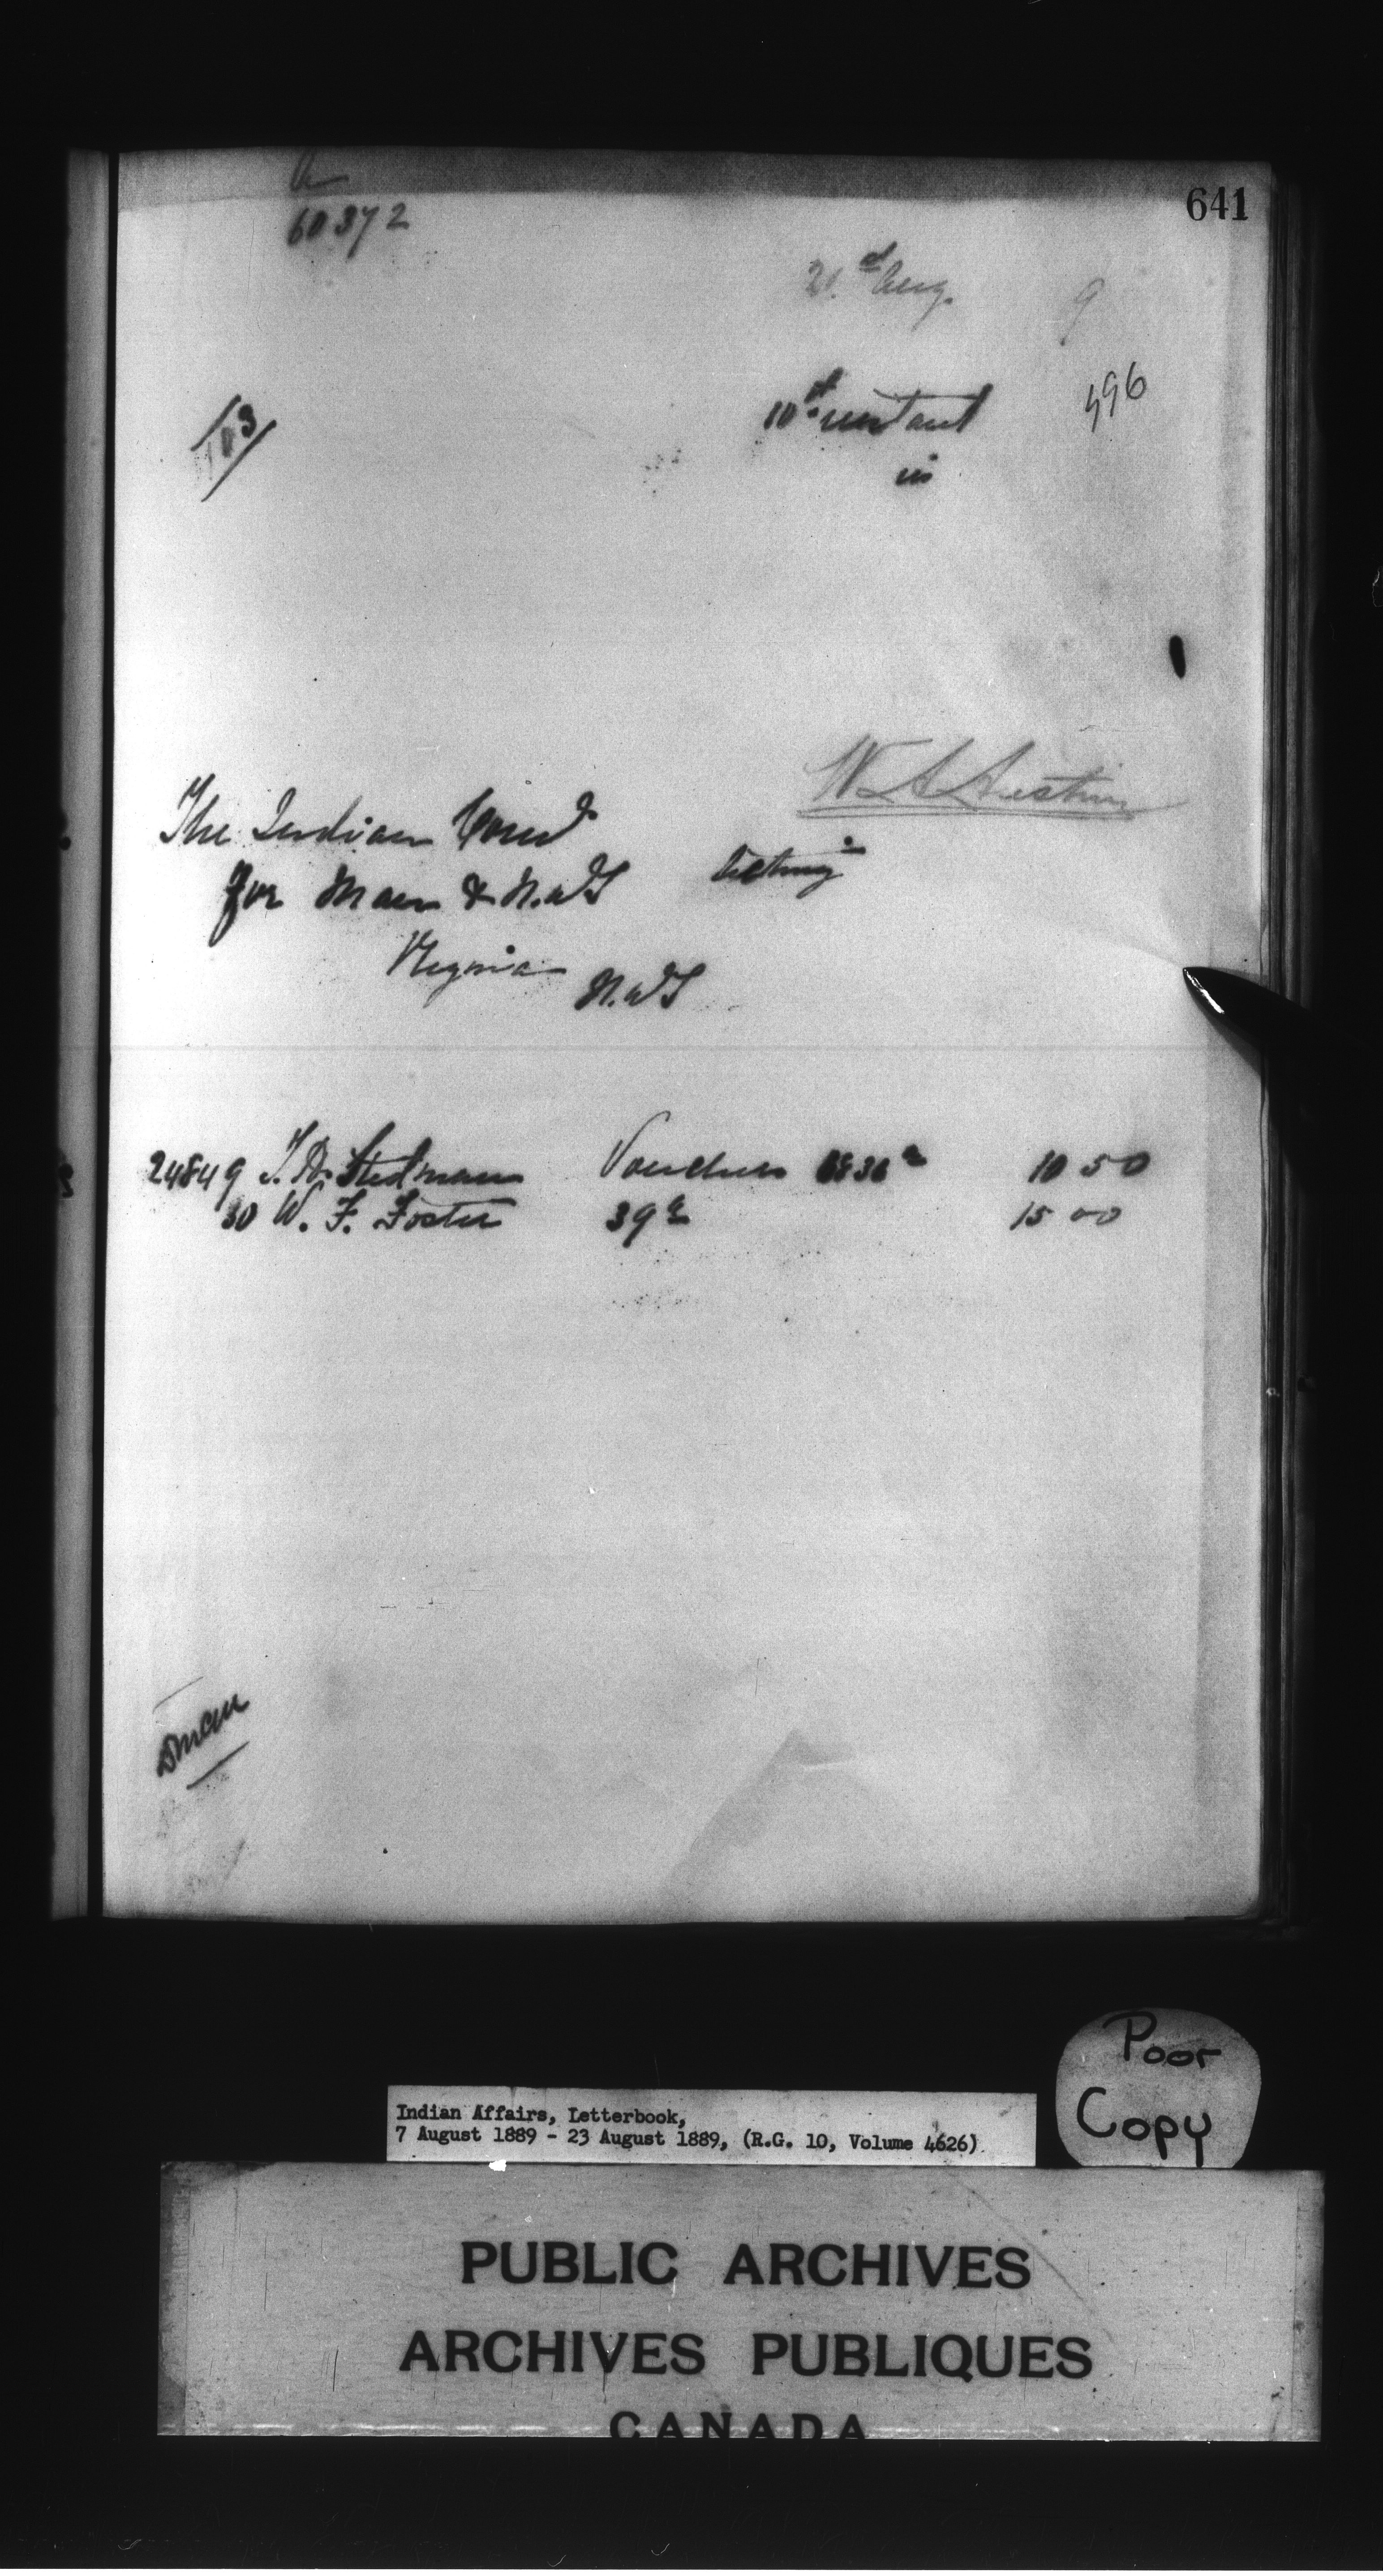 641
60372
21st Aug. 9
103
10th instant 496
in
W A Austin
The Indian Comr
for Man & N.W.T
Acting
Regina
N.W.T
24849 Stedman Voucher 10 50
50 W. F. Foster 39a 15 00
Poor
Copy
Indian Affairs, Letterbook,
7 August 1889 - 23 August 1889, (R.G. 10, Volume 4626)
PUBLIC ARCHIVES
ARCHIVES PUBLIQUES
CANADA